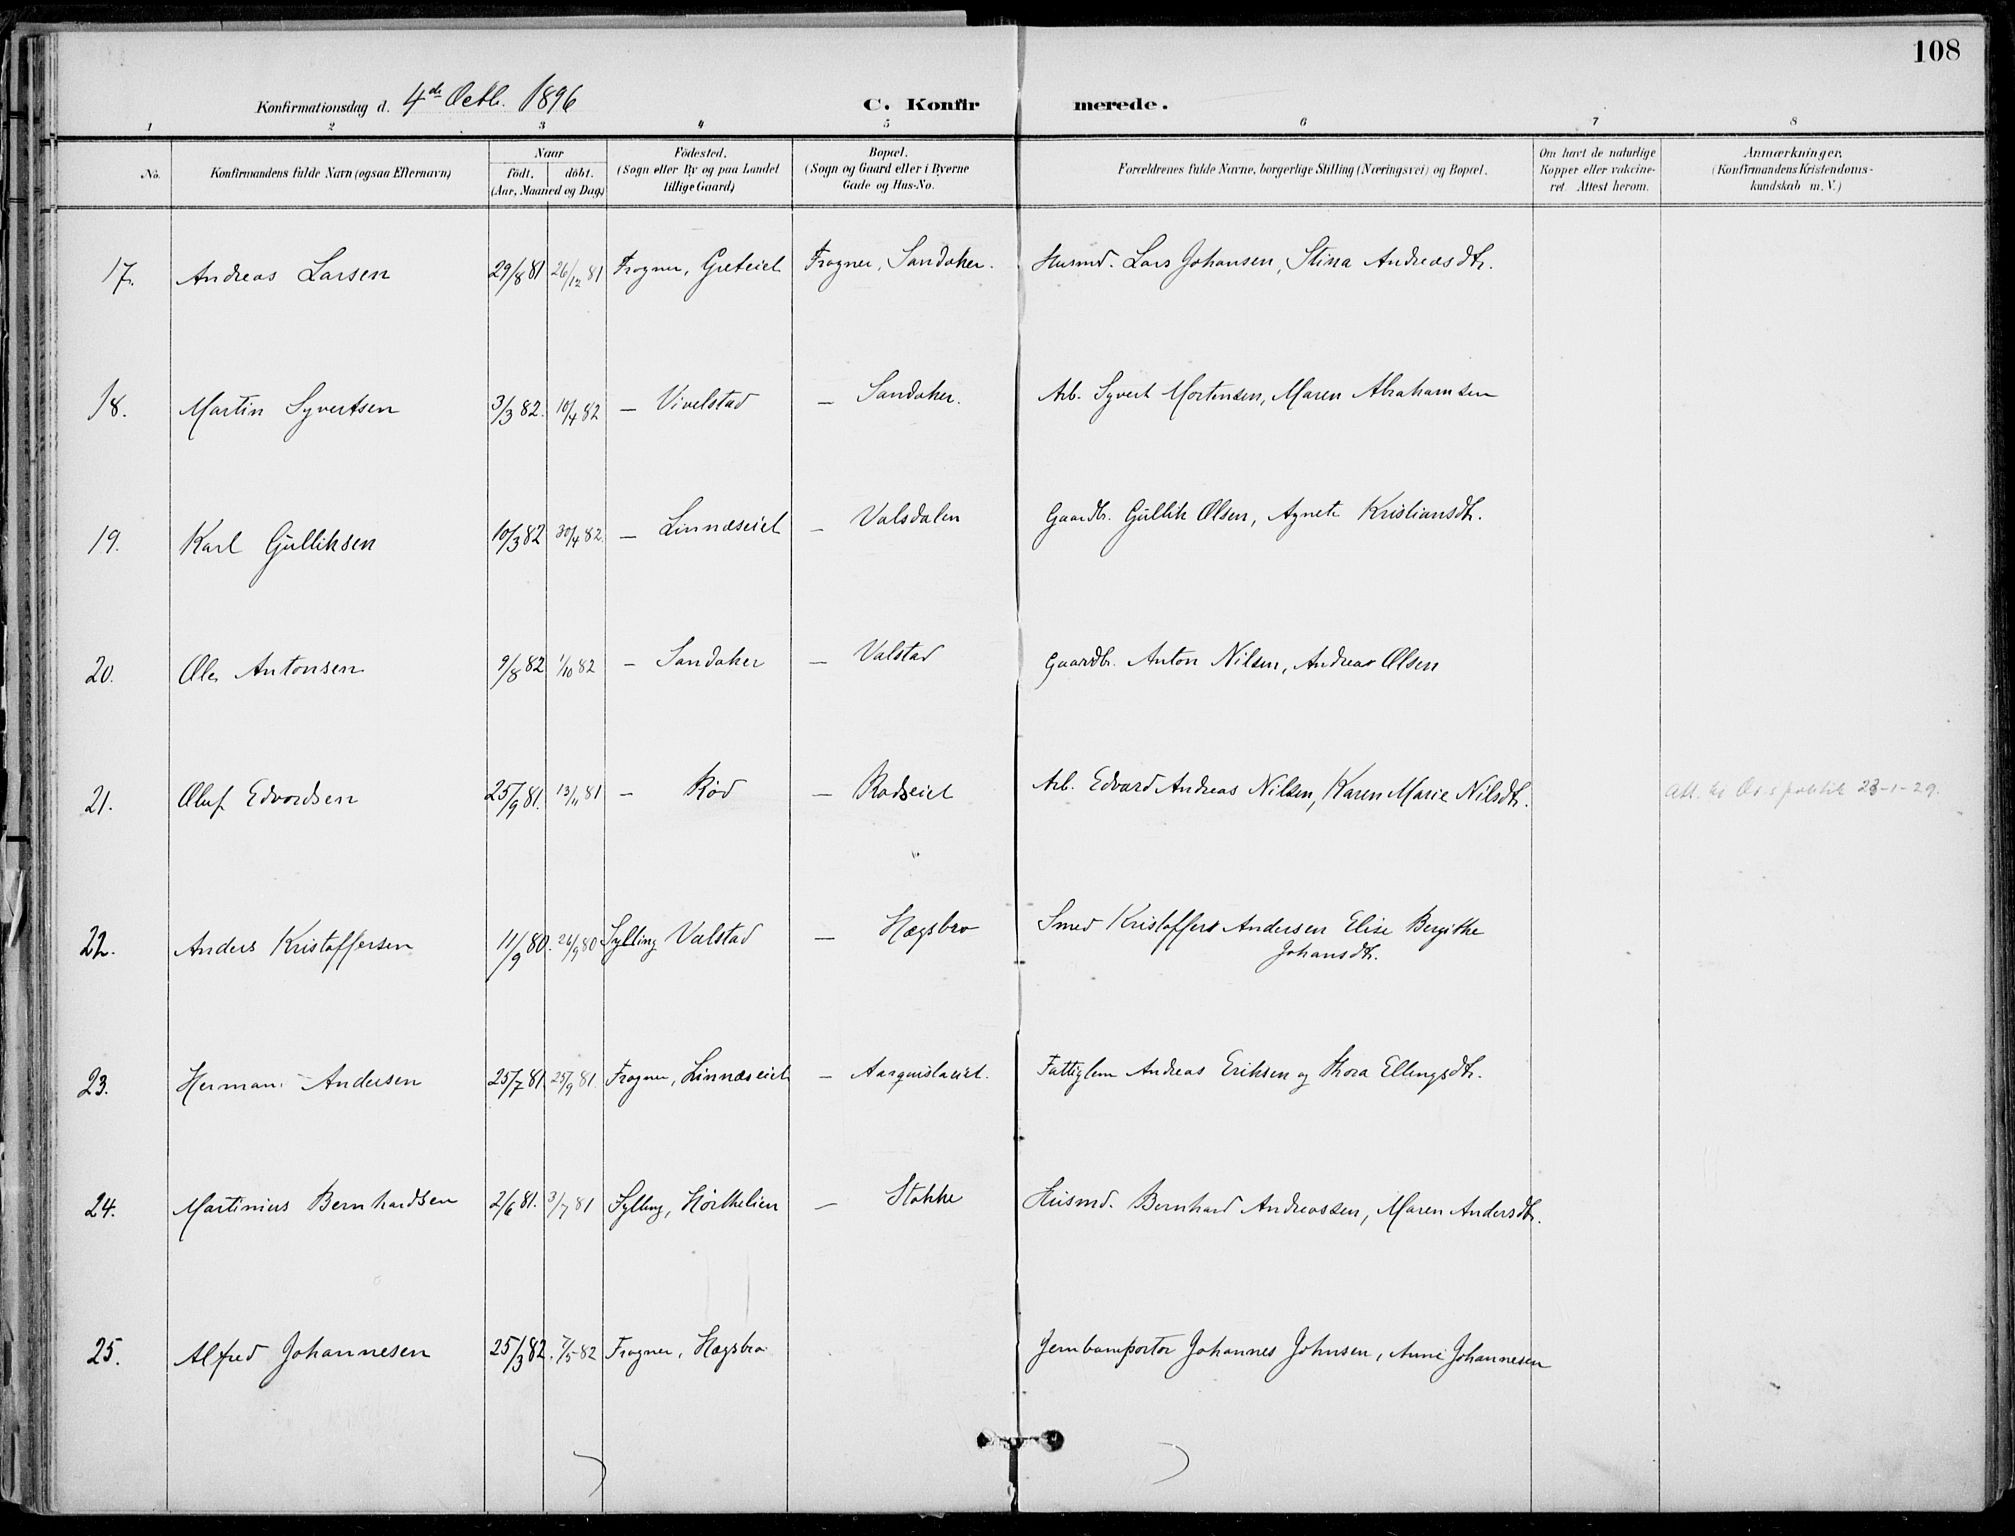 108
Konfirmationsdag d. 4de Octb. 1896 C. Konfirmerede.
1 2 3 4 5 6 7 8
No. Konfirmandens fulde Navn (ogsaa Efternavn) Naar födt. döbt. (Aar, Maaned og Dag) Födested. (Sogn eller By og paa Landet tillige Gaard) Bopæl. (Sogn og Gaard eller i Byerne Gade og Hus-No. Forældrenes fulde Navne, borgerlige Stilling (Næringsvei) og Bopæl. Om havt de naturlige Kopper eller vakcineret. Attest herom. Anmærkninger. (Konfirmandens Kristendomskundskab m. V.)
17. Andreas Larsen 29/8 81 26/12 81 Frogner, Greteiet Frogner, Sandaker. Husmd. Lars Johansen, Stina Andreasdtr.
18. Martin Syvertsen 3/3 82. 10/4 82 — Vivelstad — Sandaker. Arb. Syvert Mortensen, Maren Abrahamsen
19. Karl Gulliksen 10/3 82 30/4 82. — Linnæseiet — Valsdalen Gaardbr. Gullik Olsen, Agnete Kristiansdtr.
20. Ole Antonsen 9/8 82 1/10 82 — Sandaker — Valstad Gaardbr. Anton Nilsen, Andrea Olsen
21. Oluf Edvardsen 25/9 81. 13/11 81 — Röd — Rødseiet Arb. Edvard Andreas Nilsen, Karen Marie Nilsdtr. Att. 23-1-29.
22. Anders Kristoffersen 11/9 80. 26/9 80 Sylling Valstad — Hægsbro Smed Kristoffer Andersen Elise Bergithe
Johansdtr.
23. Herman Andersen 25/7 81. 25/9 81. Frogner, Linnæseiet — Fattiglem Andreas Eriksen og Thora Ellingsdtr.
24. Martinius Bernhardsen 2/6 81. 3/7 81 Sylling, Hörthelien — Stokke Husmd. Bernhard Andreassen, Maren Andersdtr.
25. Alfred Johannesen 25/3 82. 7/5 82 Frogner, Hægsbro Jernbaneportør Johannes Johnsen, Anne Johannesen